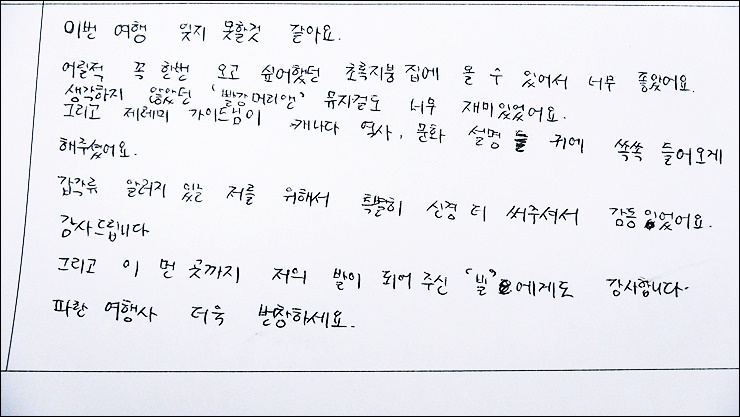 이번 여행 잊지 못할것 같아요.
어릴적 꼭 한번 오고 싶어했던 초록지붕 집에 올 수 있어서 너무 좋았어요.
생각하지 않았던 '빨강머리앤' 뮤지컬도 너무 재미있었어요.
그리고 제레미 가이드님이 캐나다 역사, 문화 설명 귀에 쏙쏙 들어오게
해주셨어요.
갑각류 알러지 있는 저를 위해서 특별히 신경 더 써주셔서 감동이었어요.
감사드립니다
그리고 이 먼 곳까지 저의 발이 되어 주신 '빌' 에게도 감사합니다.
파란 여행사 더욱 번창하세요.